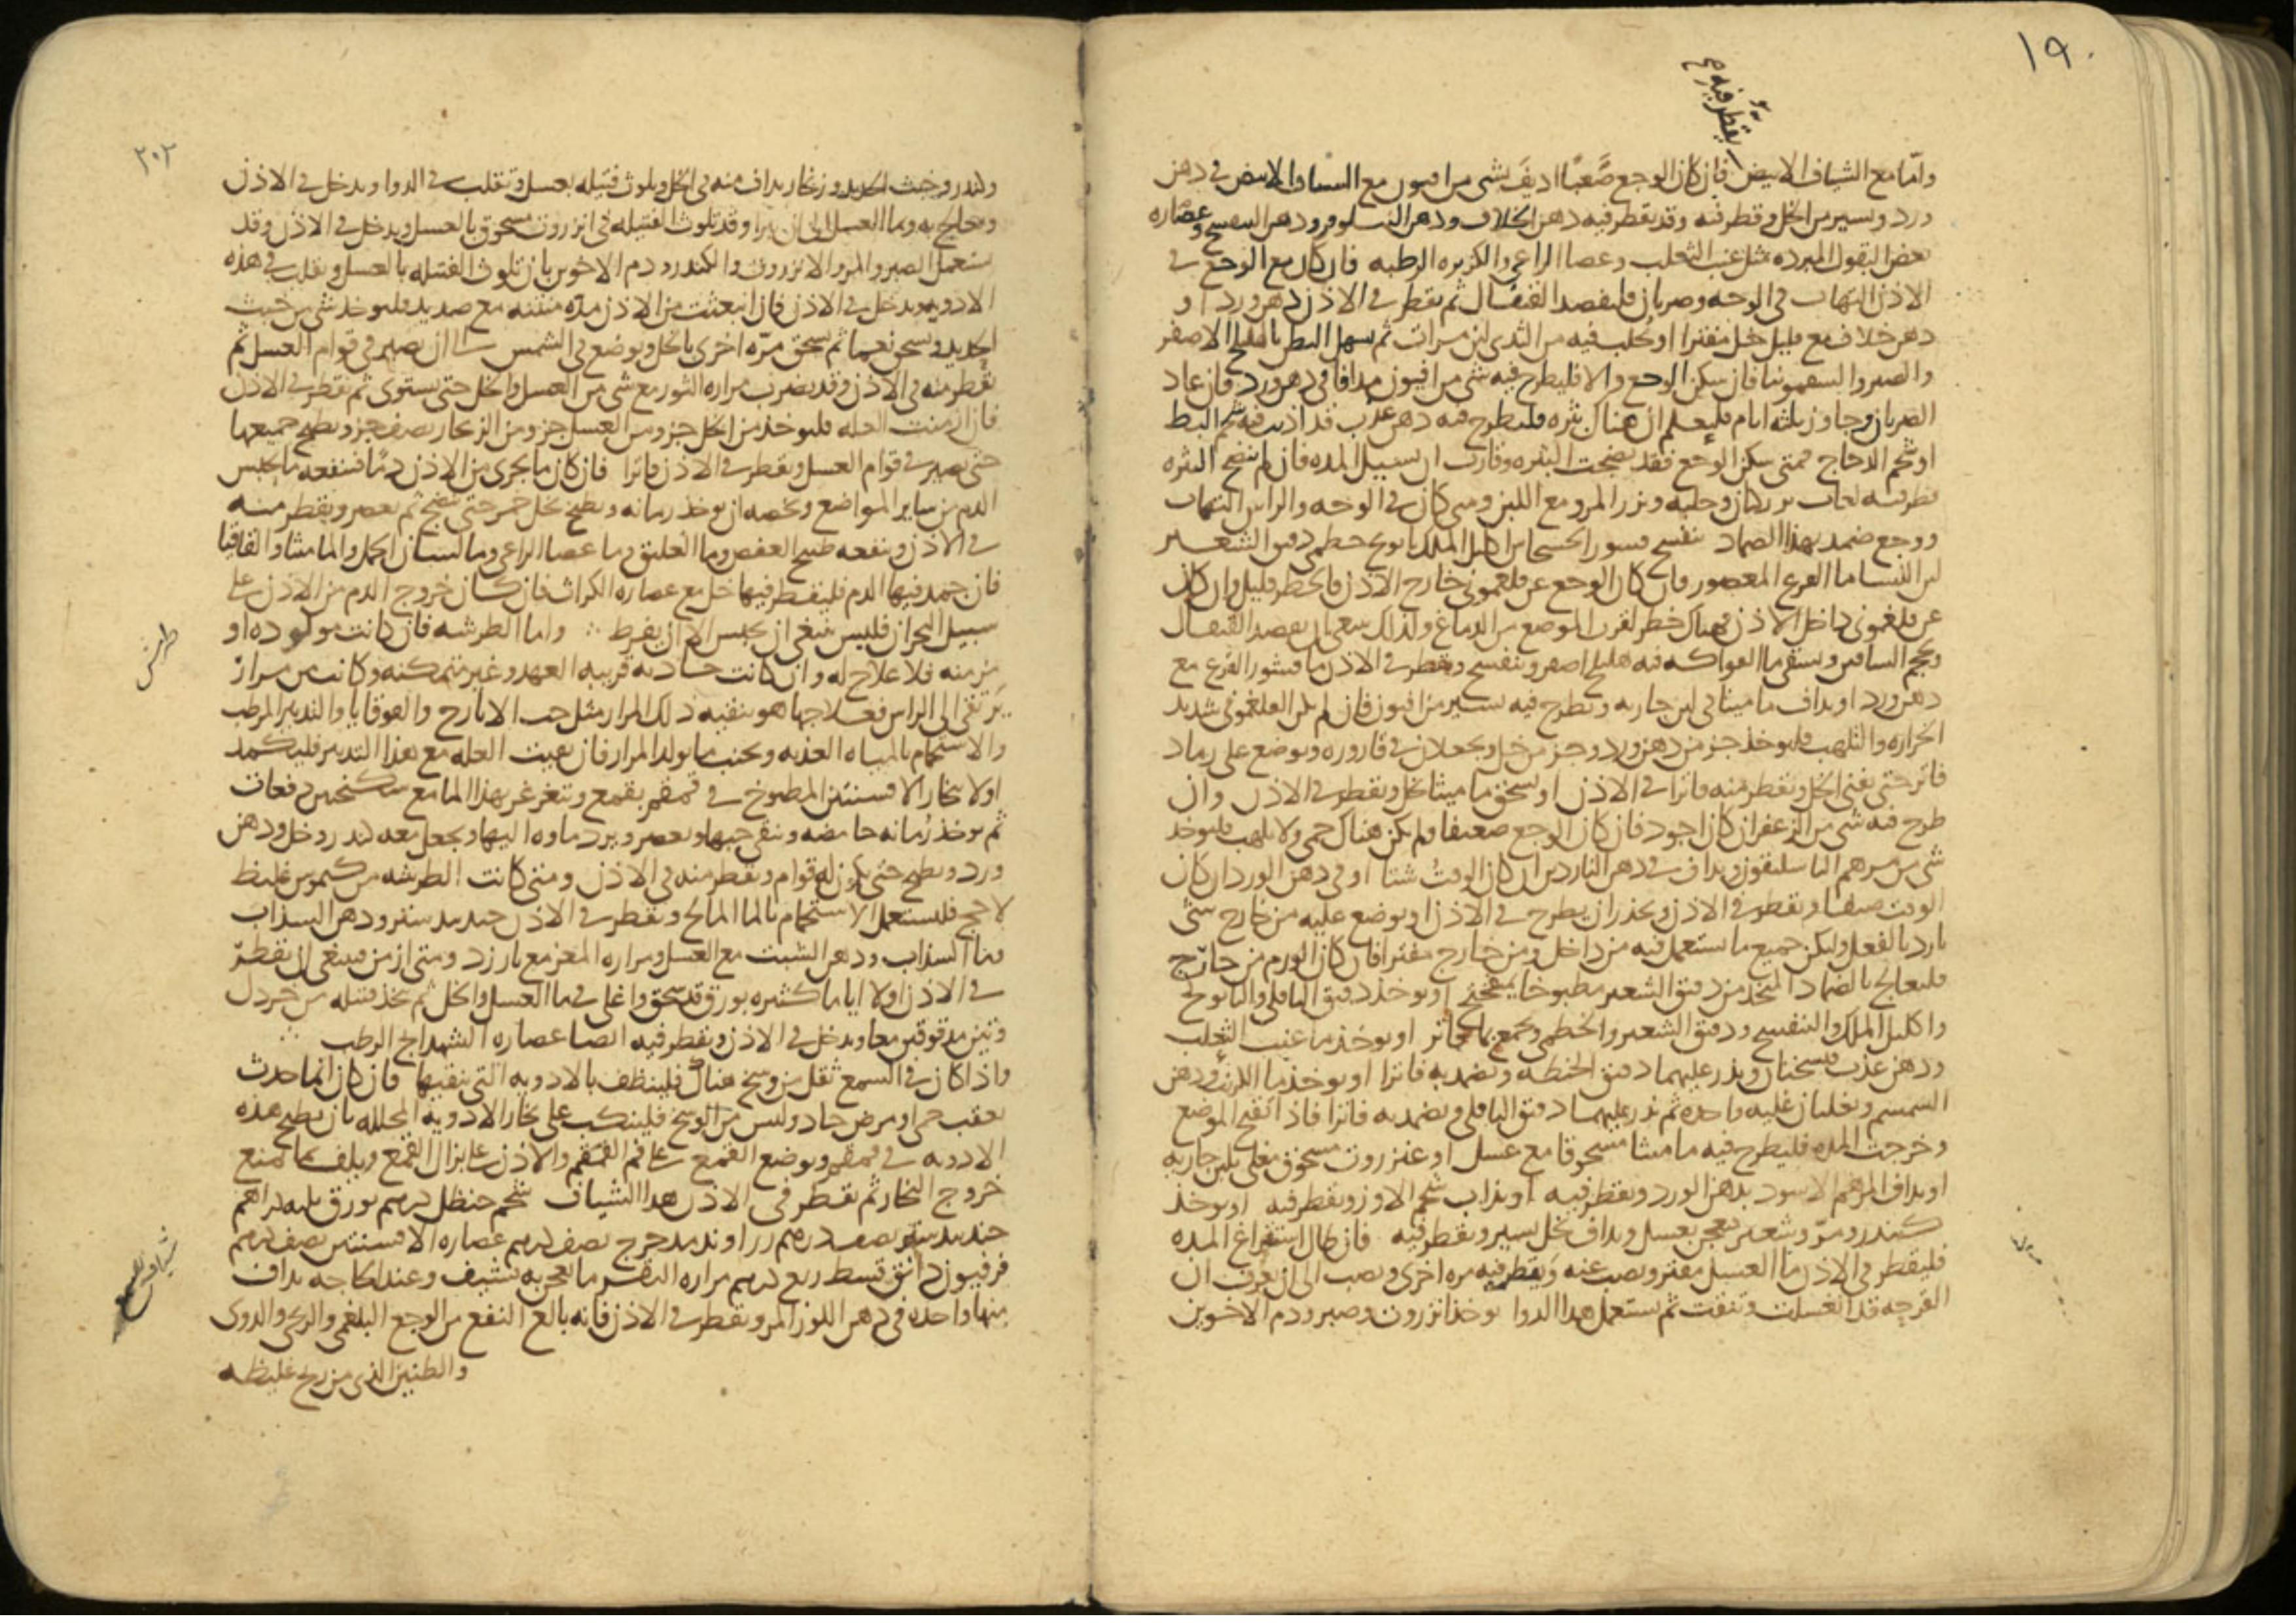 ١٩٠
يقطر فيه
واما مع الشياف الابيض فان كان الوجع صعبا اديف بشي من افيون مع الشياف الابيض في دهن
ورد ويسير من الخل وقطر فيه وقد يقطر فيه دهن الخلاف ودهن النيلوفر ودهن البنفسج وعصاره
بعض البقول المبرده مثل عنب الثعلب وعصا الراعي والكزبره الرطبه فان كان مع الوجع في
الاذن التهاب في الوجه وضربان فليفصد القيفال ثم يقطر في الاذن دهن ورد او
دهن خلاف مع قليل خل مفترا او يحلب فيه من الثدي لبن مرات ثم يسهل البطن بالهليلج الاصفر
والصبر والسقمونيا فان سكن الوجع والا فليطرح فيه شي من افيون مدافا في دهن ورد فان عاد
الضربان وجاوز ثلثه ايام فليعلم ان هناك بثره فليطرح فيه دهن عذب قد اذيب فيه شحم البط
او شحم الدجاج فمتى سكن الوجع فقد نضجت البثره وقاربت ان تسيل المده فان لم تنضج البثره
قطر فيه لعاب بزر كتان وحلبه وبزر المرو مع اللبن ومتى كان في الوجه والراس التهاب
ووجع ضمد بهذا الضماد بنفسج قشور الخشخاش اكليل الملك بابونج خطمي دقيق الشعير
لبن النسا ما القرع المعصور فان كان الوجع عن فلغموني خارج الاذن فالخطر قليل وان كان
عن فلغموني داخل الاذن فهناك خطر لقرب الموضع من الدماغ ولذلك ينبغي ان يفصد القيفال
ويحجم الساقين ويسقى ما الفواكه فيه هليلج اصفر وبنفسج ويقطر في الاذن ما قشور القرع مع
دهن ورد او يداف ماميثا في لبن جاريه ويطرح فيه يسير من افيون فان لم يكن الفلغموني شديد
الحراره والتلهب فليوخذ جز من دهن ورد وجز من خل ويجعلان في قاروره ويوضع على رماد
فاتر حتى يفنى الخل ويقطر منه فاترا في الاذن او يسحق ماميثا بخل ويقطر في الاذن وان
طرح فيه شي من الزعفران كان اجود فان كان الوجع ضعيفا ولم يكن هناك حمى ولا تلهب فليوخذ
شي من مرهم الباسليقون ويداف في دهن الناردين ان كان الوقت شتا او في دهن الورد ان كان
الوقت صيفا ويقطر في الاذن ويحذر ان يطرح في الاذن او يوضع عليه من خارج شي
بارد بالفعل وليكن جميع ما يستعمل فيه من داخل ومن خارج مفترا فان كان الورم من خارج
فليعالج بالضماد المتخذ من دقيق الشعير مطبوخا بميفختج او يوخذ دقيق الباقلي والبابونج
واكليل الملك والبنفسج ودقيق الشعير والخطمي ويجمع بما فاتر او يوخذ ما عنب الثعلب
ودهن عذب فيسخنان ويذر عليهما دقيق الحنطه ويضمد به فاترا او يوخذ ما الكرنب ودهن
السمسم ويغليان غليه واحده ثم يذر عليهما دقيق الباقلي ويضمد به فاترا فاذا انفتح الموضع
وخرجت المده فليطرح فيه ماميثا مسحوقا مع عسل او عنزروت مسحوق مغلي بلبن جاريه
او يداف المرهم الاسود بدهن الورد ويقطر فيه او يذاب شحم الاوز ويقطر فيه او يوخذ
كندر ومر وشعير يعجن بعسل ويداف بخل يسير ويقطر فيه فان طال استفراغ المده
فليقطر في الاذن ما العسل مفتر ويصب عنه ويقطر فيه مره اخرى ويصب الى ان يعرف ان
القرحه قد انغسلت وتنقت ثم يستعمل هذا الدوا يوخذ انزروت وصبر ودم الاخوين
٢٠٢
وكندر وخبث الحديد وزنجار يداف منه في الخل ويلوث فتيله بعسل وتقلب في الدوا ويدخل في الاذن
ويعالج به وبما العسل الى ان يبرا وقد تلوث الفتيله في انزروت مسحوق بالعسل ويدخل في الاذن وقد
يستعمل الصبر والمر والانزروت والكندر ودم الاخوين بان تلوث الفتيله بالعسل وتقلب في هذه
الادويه وتدخل في الاذن فان انبعثت من الاذن مده منتنه مع صديد فليوخذ شي من خبث
الحديد ويسحق نعما ثم يسحق مره اخرى بالخل ويوضع في الشمس الى ان يصير في قوام العسل ثم
يقطر منه في الاذن وقد يضرب مراره الثور مع شي من العسل والخل حتى يستوى ثم يقطر في الاذن
فان ازمنت العله فليوخذ من الخل جز ومن العسل جز ومن الزنجار نصف جز ويطبخ جميعها
حتى يصير في قوام العسل ويقطر في الاذن فاترا فان كان ما يجري من الاذن دما فينفعه ما يحبس
الدم من ساير المواضع ويخصه ان يوخذ رمانه ويطبخ بخل خمر حتى ينضج ثم يعصر ويقطر منه
في الاذن وينفعه طبيخ العفص وما العليق وما عصا الراعي وما لسان الحمل والماميثا والقاقيا
فان جمد فيها الدم فليقطر فيها خل مع عصاره الكراث فان كان خروج الدم من الاذن على
سبيل البحران فليس ينبغي ان يحبس الا ان يفرط واما الطرشه فان كانت مولوده او
طرش
مزمنه فلا علاج له وان كانت حادثه قريبه العهد وغير متمكنه وكانت من مرار
يرتقى الى الراس فعلاجها هو بتنقيه ذلك المرار مثل حب الايارج والقوقايا والتدبير المرطب
والاستحمام بالمياه العذبه وتجنب ما يولد المرار فان بقيت العله مع هذا التدبير فليكمد
اولا ببخار الافسنتين المطبوخ في قمقم بقمع وتغرغر بهذا الما مع سكنجبين دفعات
ثم يوخذ رمانه حامضه وينقى حبها ويعصر ويرد ماوه اليها ويجعل معه كندر وخل ودهن
ورد ويطبخ حتى يكون له قوام ويقطر منه في الاذن ومتى كانت الطرشه من كيموس غليظ
لاحج فليستعمل الاستحمام بالما المالح ويقطر في الاذن جندبيدستر ودهن السذاب
وما السذاب ودهن الشبت مع العسل ومراره المعز مع بارزد ومتى ازمن فينبغي ان يقطر
في الاذن اولا اياما كثيره بورق قد سحق واغلي في ما العسل والخل ثم يتخذ فتيله من خردل
وتين مدقوقين معا ويدخل في الاذن ويقطر فيه ايضا عصاره الشهدانج الرطب
واذا كان في السمع ثقل من وسخ هناك فلينظف بالادويه التي تنقيها فان كان انما حدث
بعقب حمى او مرض حاد وليس من الوسخ فلينكب على بخار الادويه المحلله بان يطبخ هذه
الادويه في قمقم ويوضع القمع على فم القمقم والاذن على بزال القمع ويلف بما يمنع
خروج البخار ثم يقطر في الاذن هذا الشياف شحم حنظل درهم بورق ثلثه دراهم
جندبيدستر نصف درهم زراوند مدحرج نصف درهم عصاره الافسنتين نصف درهم
شياف
فرفيون دانق قسط ربع درهم مراره البقر ما يعجن به تشيف وعند الحاجه يداف
منها واحده في دهن اللوز المر ويقطر في الاذن فانه بالغ النفع من الوجع البلغمي والريحي والدوى
والطنين الذي من ريح غليظه